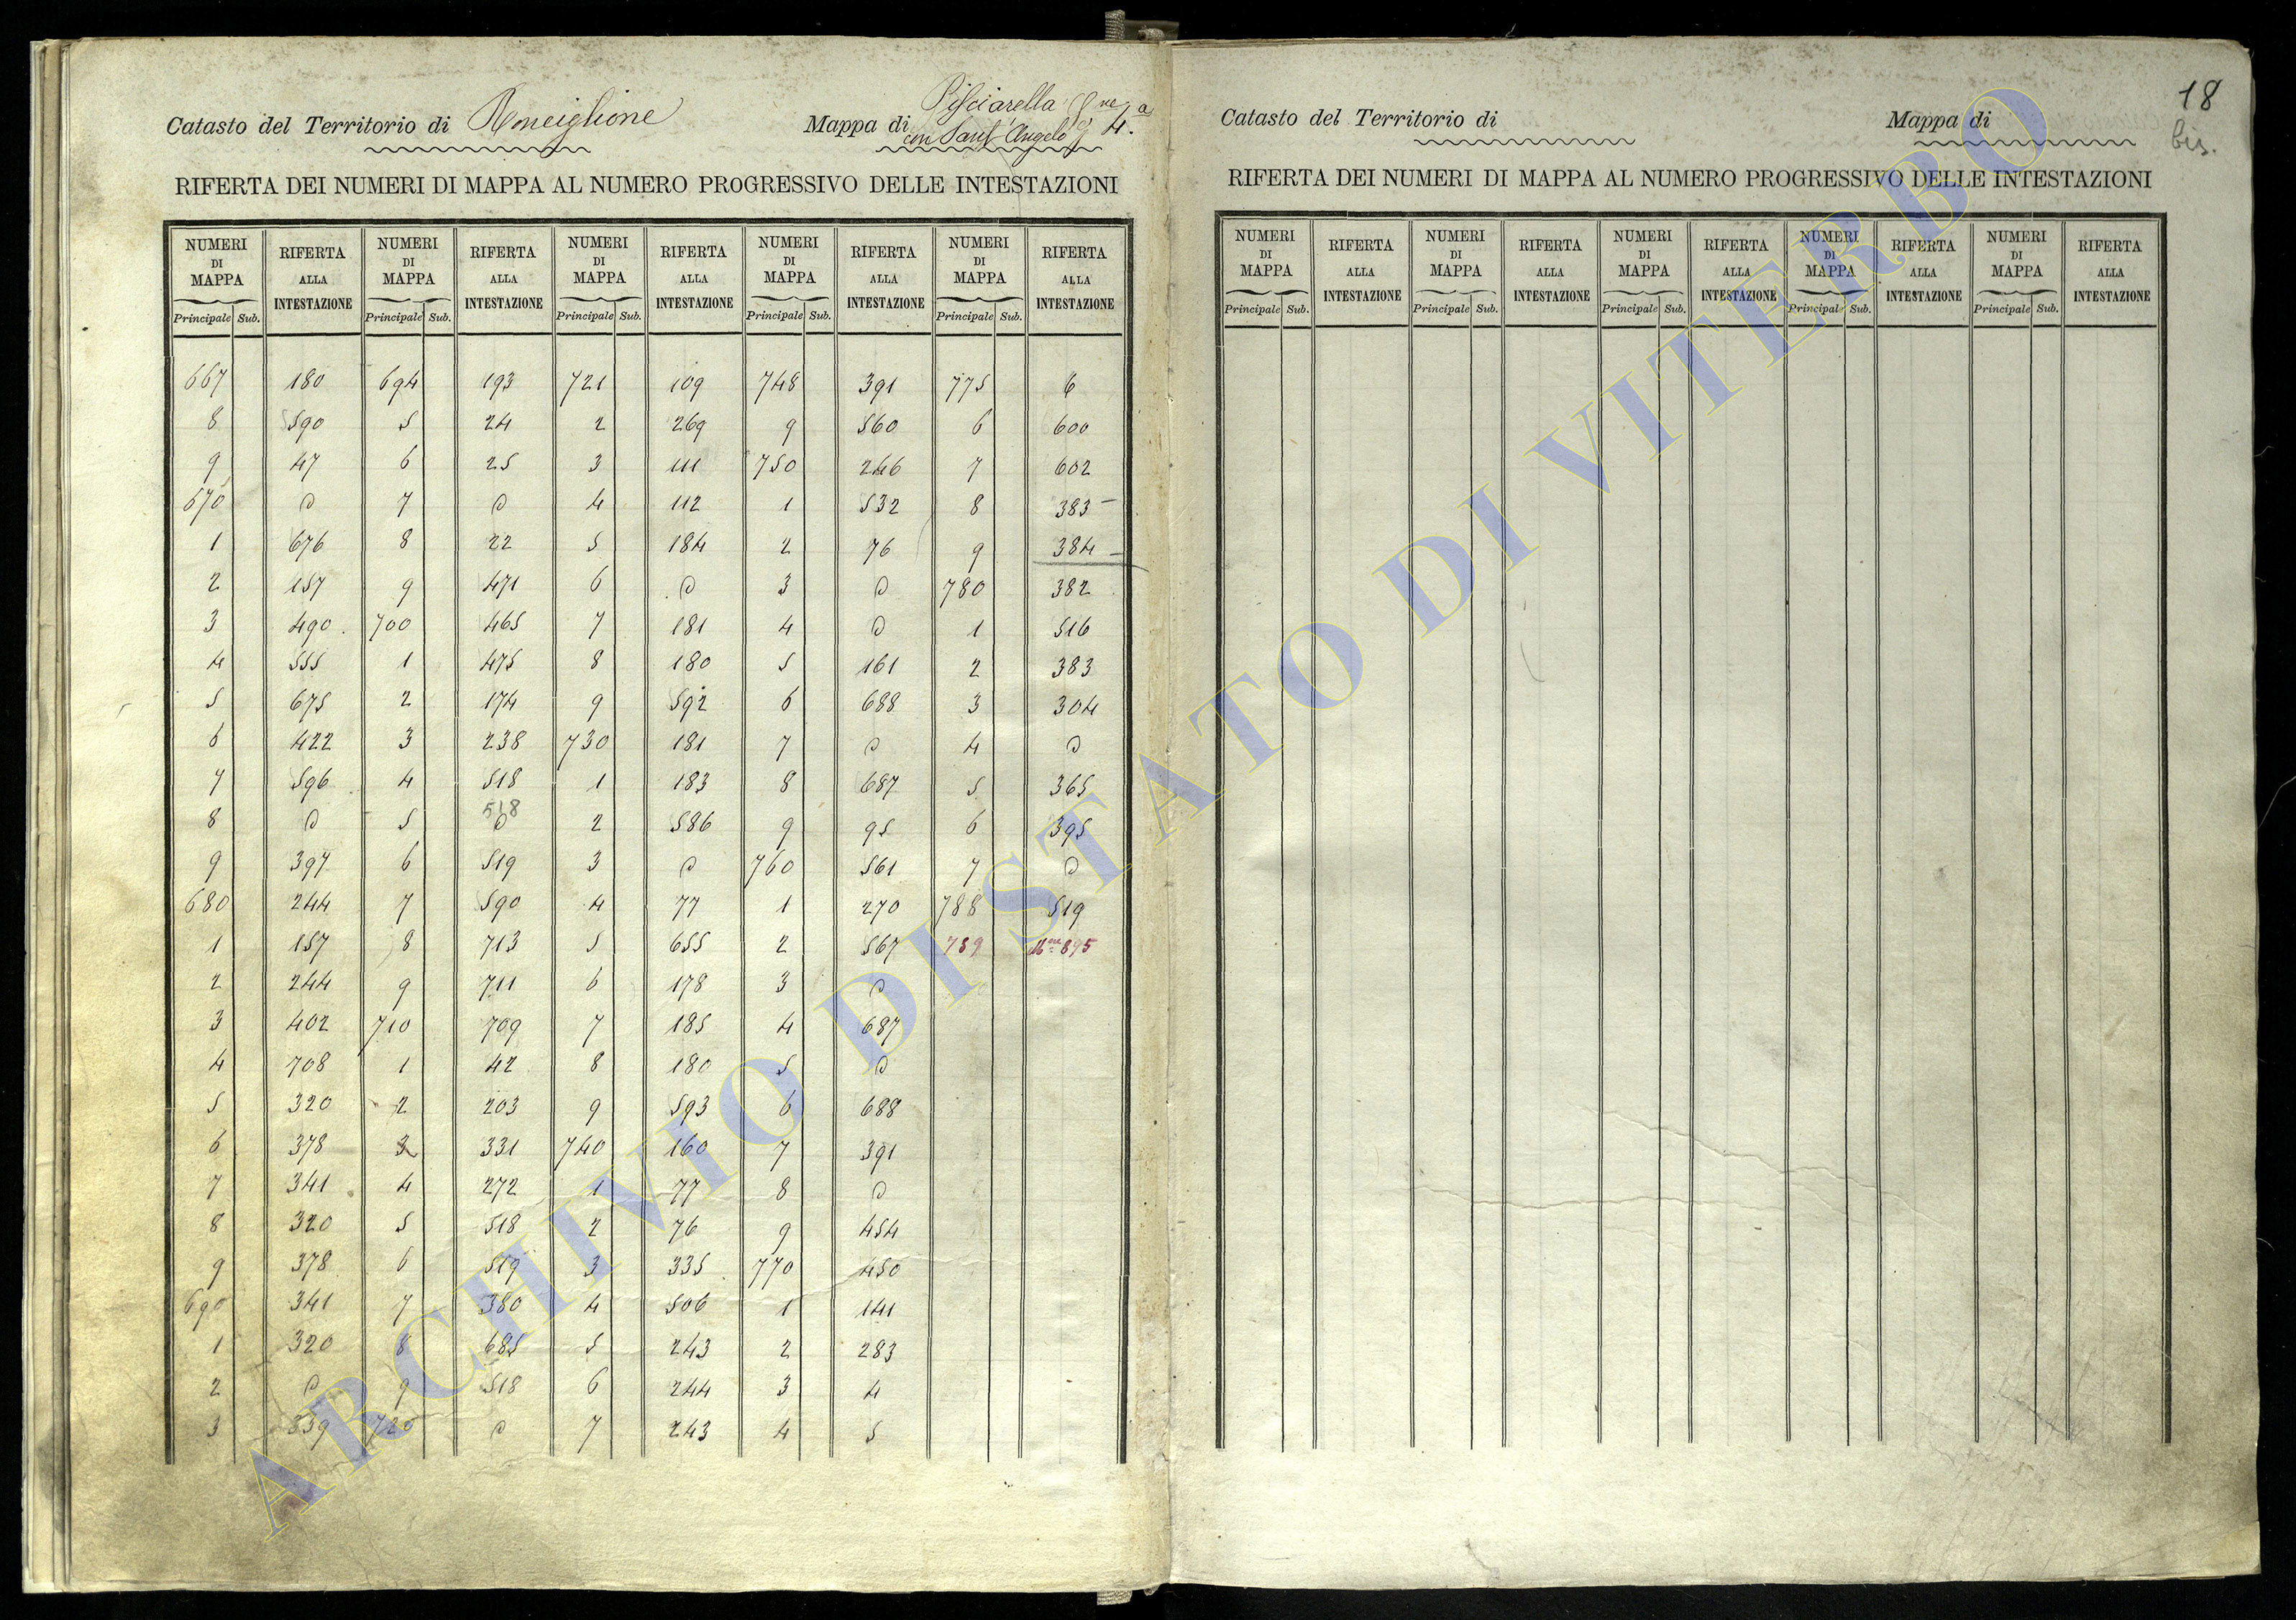 Catasto del Territorio di Ronciglione
Mappa di Pisciarella con Sant'Angelo S.ne 4.a
RIFERTA DEI NUMERI DI MAPPA AL NUMERO PROGRESSIVO DELLE INTESTAZIONI
NUMERI DI MAPPA RIFERTA ALLA INTESTAZIONE NUMERI DI MAPPA RIFERTA ALLA INTESTAZIONE NUMERI DI MAPPA RIFERTA ALLA INTESTAZIONE NUMERI DI MAPPA RIFERTA ALLA INTESTAZIONE NUMERI DI MAPPA RIFERTA ALLA INTESTAZIONE
Principale Sub. Principale Sub. Principale Sub. Principale Sub. Principale Sub.
667 180 694 193 721 109 748 391 775 6
8 590 5 24 2 269 9 560 6 600
9 47 6 25 3 111 750 246 7 602
670 D 7 D 4 112 1 532 8 383 –
1 676 8 22 5 184 2 76 9 384 –
2 157 9 471 6 D 3 D 780 382
3 490 700 465 7 181 4 D 1 516
4 555 1 475 8 180 5 161 2 383
5 675 2 174 9 592 6 688 3 304
6 422 3 238 730 181 7 D 4 D
7 596 4 518 1 183 8 687 5 365
8 D 5 518 D 2 586 9 95 6 395
9 397 6 519 3 D 760 561 7 D
680 244 7 590 4 77 1 270 788 519
1 157 8 713 5 655 2 567 789 895
2 244 9 711 6 178 3 D
3 402 710 709 7 185 4 687
4 708 1 42 8 180 5 D
5 320 2 203 9 593 6 688
6 378 3 331 740 160 7 391
7 341 4 272 1 77 8 D
8 320 5 518 2 76 9 454
9 378 6 519 3 335 770 450
690 341 7 380 4 506 1 141
1 320 8 685 5 243 2 283
2 D 9 518 6 244 3 4
3 839 720 D 7 243 4 5
18
bis.
Catasto del Territorio di
Mappa di
RIFERTA DEI NUMERI DI MAPPA AL NUMERO PROGRESSIVO DELLE INTESTAZIONI
NUMERI DI MAPPA RIFERTA ALLA INTESTAZIONE NUMERI DI MAPPA RIFERTA ALLA INTESTAZIONE NUMERI DI MAPPA RIFERTA ALLA INTESTAZIONE NUMERI DI MAPPA RIFERTA ALLA INTESTAZIONE NUMERI DI MAPPA RIFERTA ALLA INTESTAZIONE
Principale Sub. Principale Sub. Principale Sub. Principale Sub. Principale Sub.
ARCHIVIO DI STATO DI VITERBO